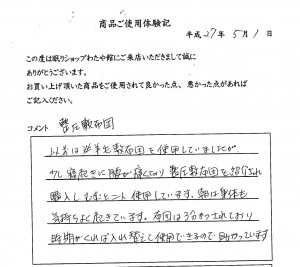 商品ご使用体験記
平成27年5月1日
この度は眠りショップわたや館にご来店いただきまして誠に
ありがとうございます。
お買い上げ頂いた商品をご使用されて良かった点、悪かった点があれば
ご記入ください。
コメント 整圧敷布団
以前は羊毛敷布団を使用していましたが
少し寝起きに腰が痛くなり整圧敷布団を紹介され
購入しむすこと二人使用しています。朝は身体も
気持ちよく起きています。布団は3分かつされており
時期がくれば入れ替えて使用できるので助かっています